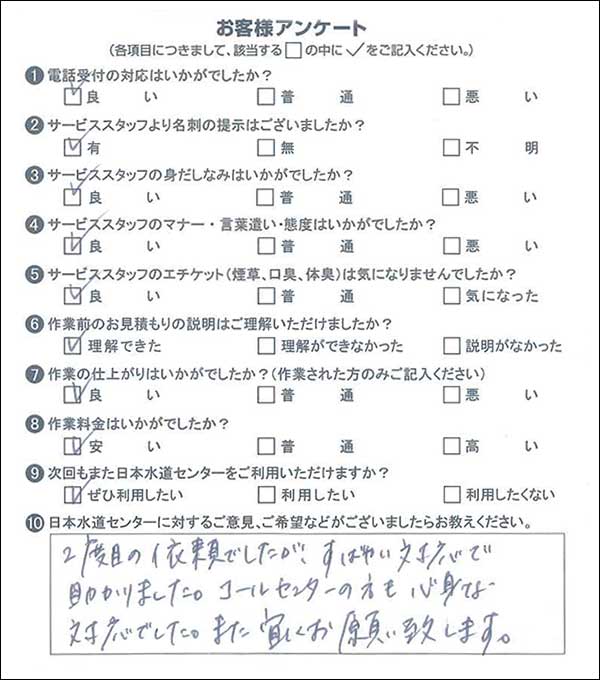 お客様アンケート
(各項目につきまして、該当する□の中に✓をご記入ください。)
❶ 電話受付の対応はいかがでしたか?
☑良い □普通 □悪い
❷ サービススタッフより名刺の提示はございましたか?
☑有 □無 □不明
❸ サービススタッフの身だしなみはいかがでしたか?
☑良い □普通 □悪い
❹ サービススタッフのマナー・言葉遣い・態度はいかがでしたか?
☑良い □普通 □悪い
❺ サービススタッフのエチケット(煙草、口臭、体臭)は気になりませんでしたか?
☑良い □普通 □気になった
❻ 作業前のお見積もりの説明はご理解いただけましたか?
☑理解できた □理解ができなかった □説明がなかった
❼ 作業の仕上がりはいかがでしたか?(作業された方のみご記入ください)
☑良い □普通 □悪い
❽ 作業料金はいかがでしたか?
☑安い □普通 □高い
❾ 次回もまた日本水道センターをご利用いただけますか?
☑ぜひ利用したい □利用したい □利用したくない
❿ 日本水道センターに対するご意見、ご希望などがございましたらお教えください。
2度目の依頼でしたが、すばやい対応で
助かりました。コールセンターの方も心身な
対応でした。また宜しくお願い致します。